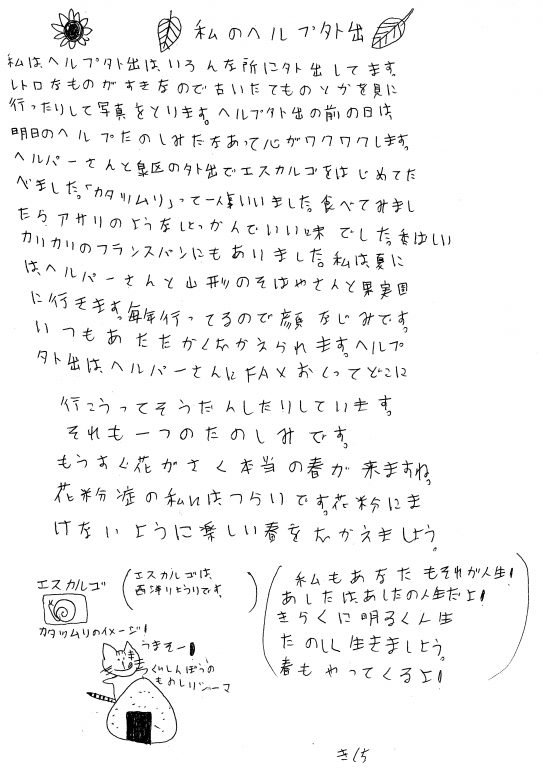 私のヘルプ外出
私はヘルプ外出はいろんな所に外出してます。
レトロなものがすきなので古いたてものとかを見に
行ったりして写真をとります。ヘルプ外出の前の日は
明日のヘルプたのしみだなあって心がワクワクします。
ヘルパーさんと泉区の外出でエスカルゴをはじめてた
べました。「カタツムリ」って一人言いいました。食べてみまし
たらアサリのようなしょっかんでいい味でした。香ばしい
カリカリのフランスパンにもありました。私は夏に
はヘルパーさんと山形のそばやさんと果実園
に行きます。毎年行ってるので顔なじみです。
いつもあたたかくむかえられます。ヘルプ
外出は、ヘルパーさんにFAXおくってどこに
行こうってそうだんしたりしています。
それも一つのたのしみです。
もうすぐ花がさく本当の春が来ますね。
花粉症の私にはつらいです。花粉にま
けないように楽しい春をむかえましょう。
エスカルゴ
(エスカルゴは、
西洋りょうりです。)
カタツムリのイメージ!
うまそー!
くいしんぼうの
ものしりシーマ
(私もあなたもそれが人生!
あしたは、あしたの人生だよ!
きらくに明るく人生
たのしく生きましょう。
春もやってくるよ!)
きくち